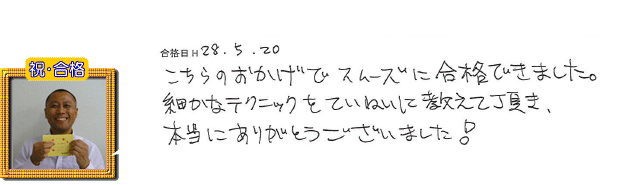 祝・合格
合格日 H 28.5.20
こちらのおかげでスムーズに合格できました。
細かなテクニックをていねいに教えて頂き、
本当にありがとうございました!